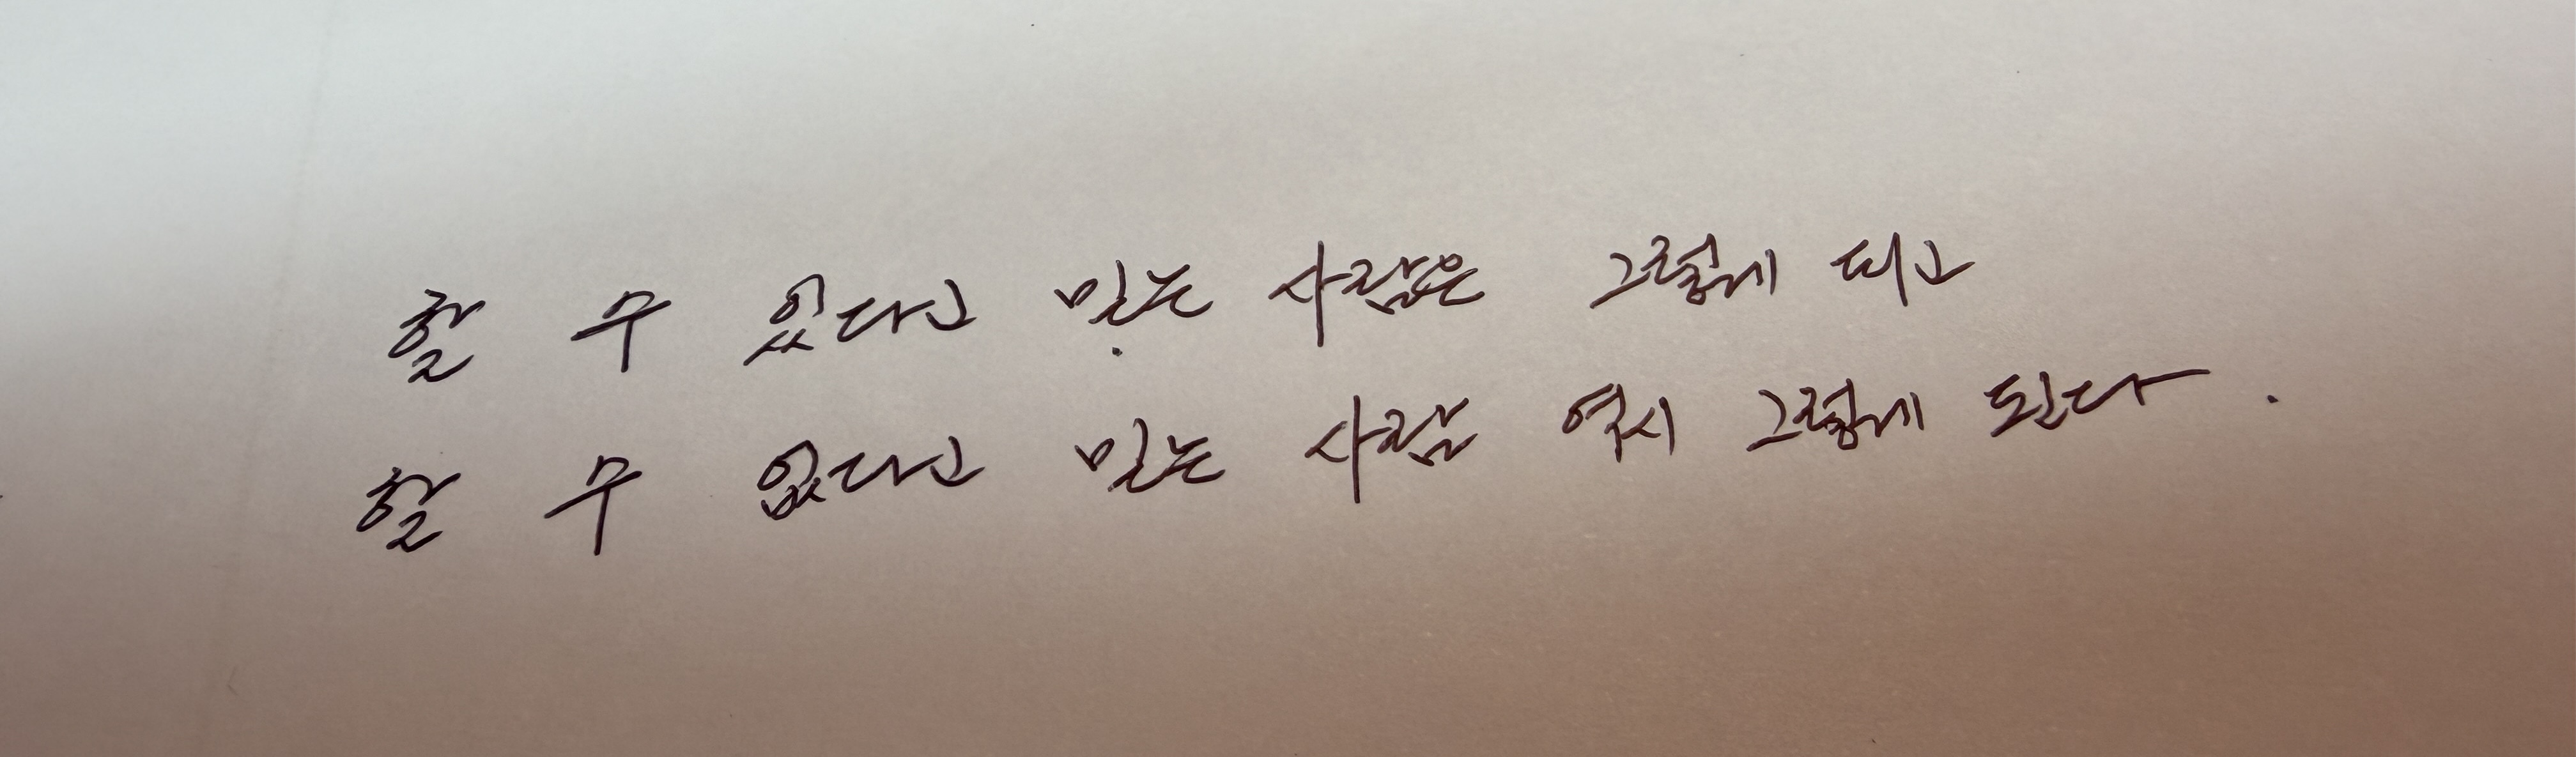 할 수 있다고 믿는 사람은 그렇게 되고
할 수 없다고 믿는 사람 역시 그렇게 된다.